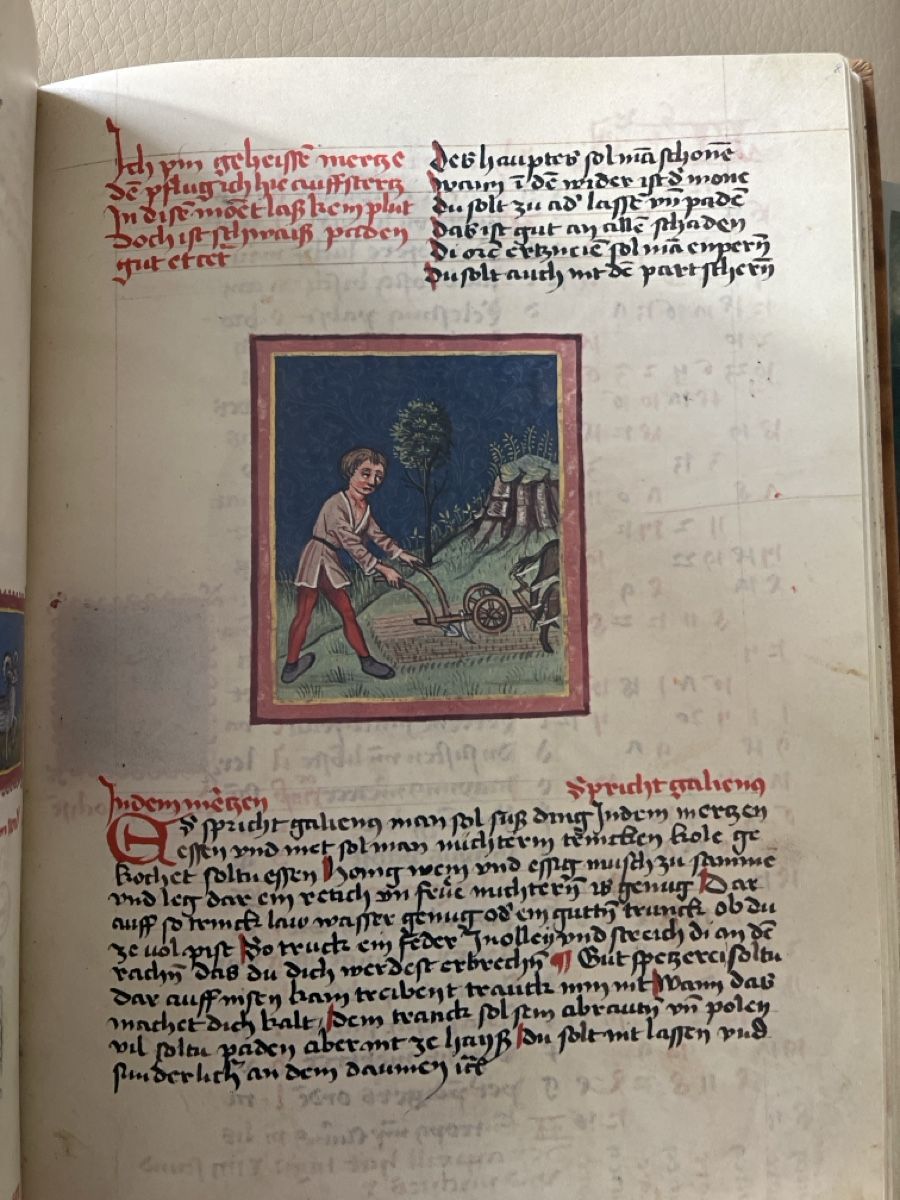 Ich pin geheissē mertze
dē pflug ich hie auffstertz
In disē monet laß kein plut
doch ist schwaiß paden
gut et cet̄
des hauptes sol mā schonē
wann ī dē wider ist d̄ mone
du solt zu ad̓ lassē vn̄ padē
das ist gut an allē schaden
di orē ertzneiē sol mā enpern̄
du solt auch nit dē part schern̄
In dem mertzen
Spricht galienus
Es spricht galienus man sol süß ding In dem mertzen
essen vnd met sol man nüchtern trincken kole ge
kochet soltu essen Honig wein vnd essig misch zu samme
vnd leg dar ein retich vn̄ nüchtern̄ is genug Dar
auff so trinck law wasser genug od̓ ein guttn̄ trunck ob du
ze vol pist So truck ein feder In olley vnd streich di an dē
rachn̄ das du dich werdest erbrechn̄ ¶ Gut spetzerei soltu
dar auff nisen kain treibent tranck nim nit Wann das
machet dich kalt Dein tranck sol sein abrautn̄ vn̄ polen
vil soltu paden aber nit ze haiß Du solt nit lassen vnd
sunderlich̄ an dem daumen